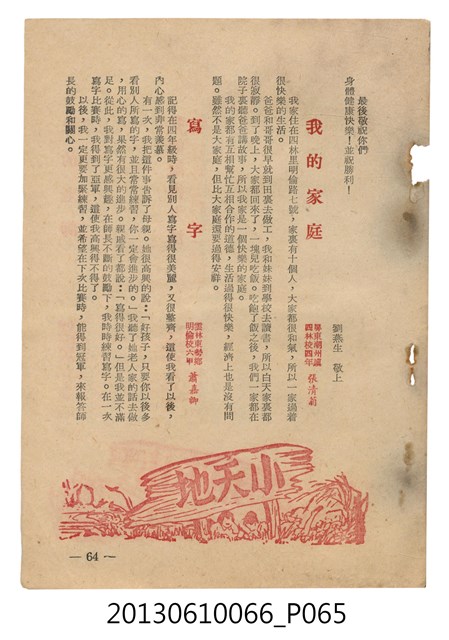 最後敬祝你們
身體健康快樂！並祝勝利！
劉燕生　敬上
我的家庭
屏東潮州鎮
四林校四年
張清菊
我家住在四林里明倫路七號，家裏有十個人，大家都很和氣，所以一家過着
很快樂的生活。
爸爸和哥哥很早就到田裏去做工，我和妹妹到學校去讀書，所以白天家裏都
很寂靜。到了晚上，大家都回來了，一塊兒吃飯。吃飽了飯之後，我們一家都在
院子裏聽爸爸講故事，所以我家是一個快樂的家庭。
我的家都有互相幫忙互相合作的道德，生活過得很快樂，經濟上也是沒有問
題。雖然不是大家庭，但比大家庭還要過得安祥。
寫字
雲林東勢鄉
明倫校六甲
蕭嘉御
記得在四年級時，看見別人寫字寫得很美麗，又很整齊，這使我看了以後，
內心感到非常羨慕。
有一次，我把這件事告訴了母親。她很高興的說：「好孩子，只要你以後多
看別人所寫的字，並且常常練習，你一定會進步的。」我聽了她老人家的話去做
，用心的寫，果然有很大的進步。親戚看了都說：「寫得很好。」但是我並不滿
足。從此，我對寫字更感興趣，在師長不斷的鼓勵下，我時時練習寫字。在一次
寫字比賽時，我得到了亞軍，這使我高興得不得了。
以後，我一定更要加緊練習，並希望在下次比賽時，能得到冠軍，來報答師
長的鼓勵和關心。
小天地
— 64 —
20130610066_P065